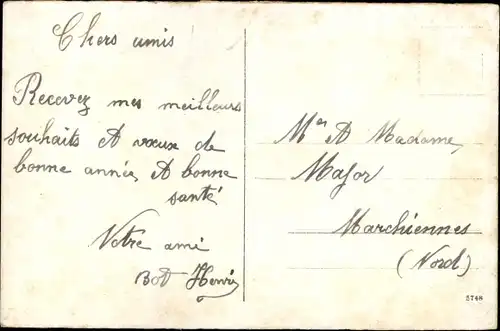 Chers amis
Recevez mes meilleurs
souhaits & vœux de
bonne année, & bonne
santé
Votre ami
Bot Henri
Mer & Madame,
Major
Marchiennes
(Nord)
5748